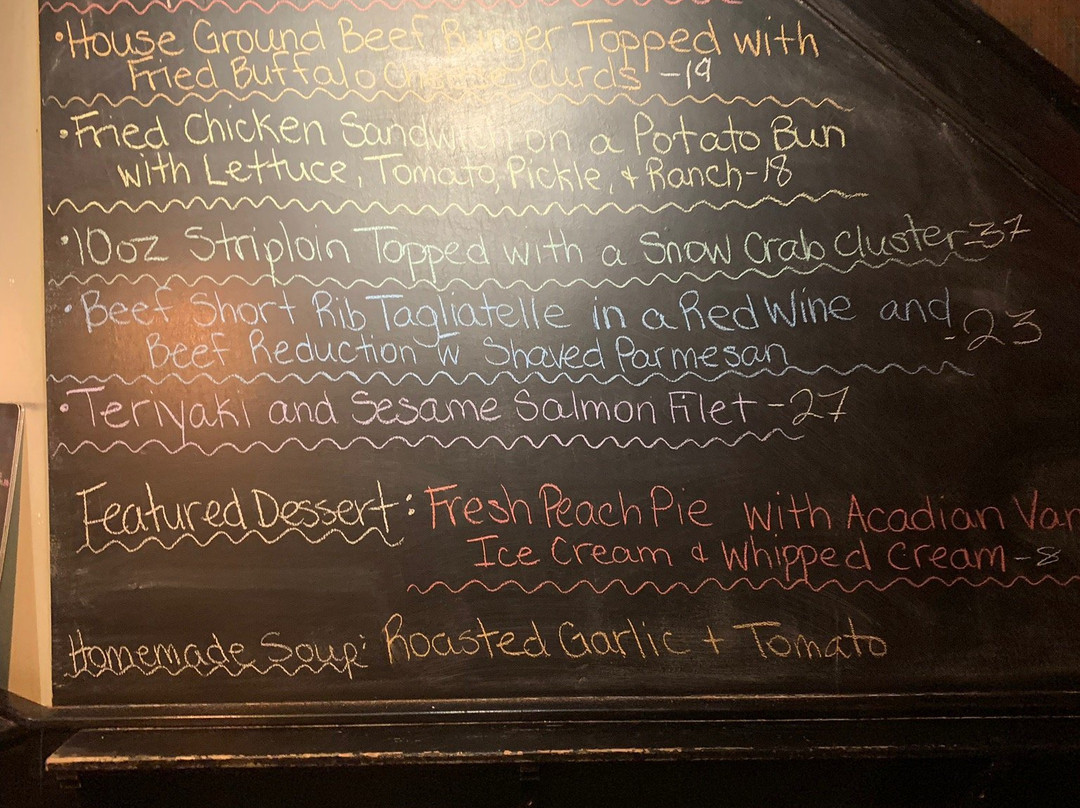 •House Ground Beef Burger Topped with
Fried Buffalo Cheese Curds -19
•Fried Chicken Sandwich on a Potato Bun
with Lettuce, Tomato, Pickle, + Ranch-18
•10oz Striploin Topped with a Snow Crab Cluster-37
•Beef Short Rib Tagliatelle in a Red Wine and
Beef Reduction w Shaved Parmesan -23
•Teriyaki and Sesame Salmon Filet -27
Featured Dessert: Fresh Peach Pie with Acadian
Ice Cream & Whipped Cream -8
Homemade Soup: Roasted Garlic + Tomato